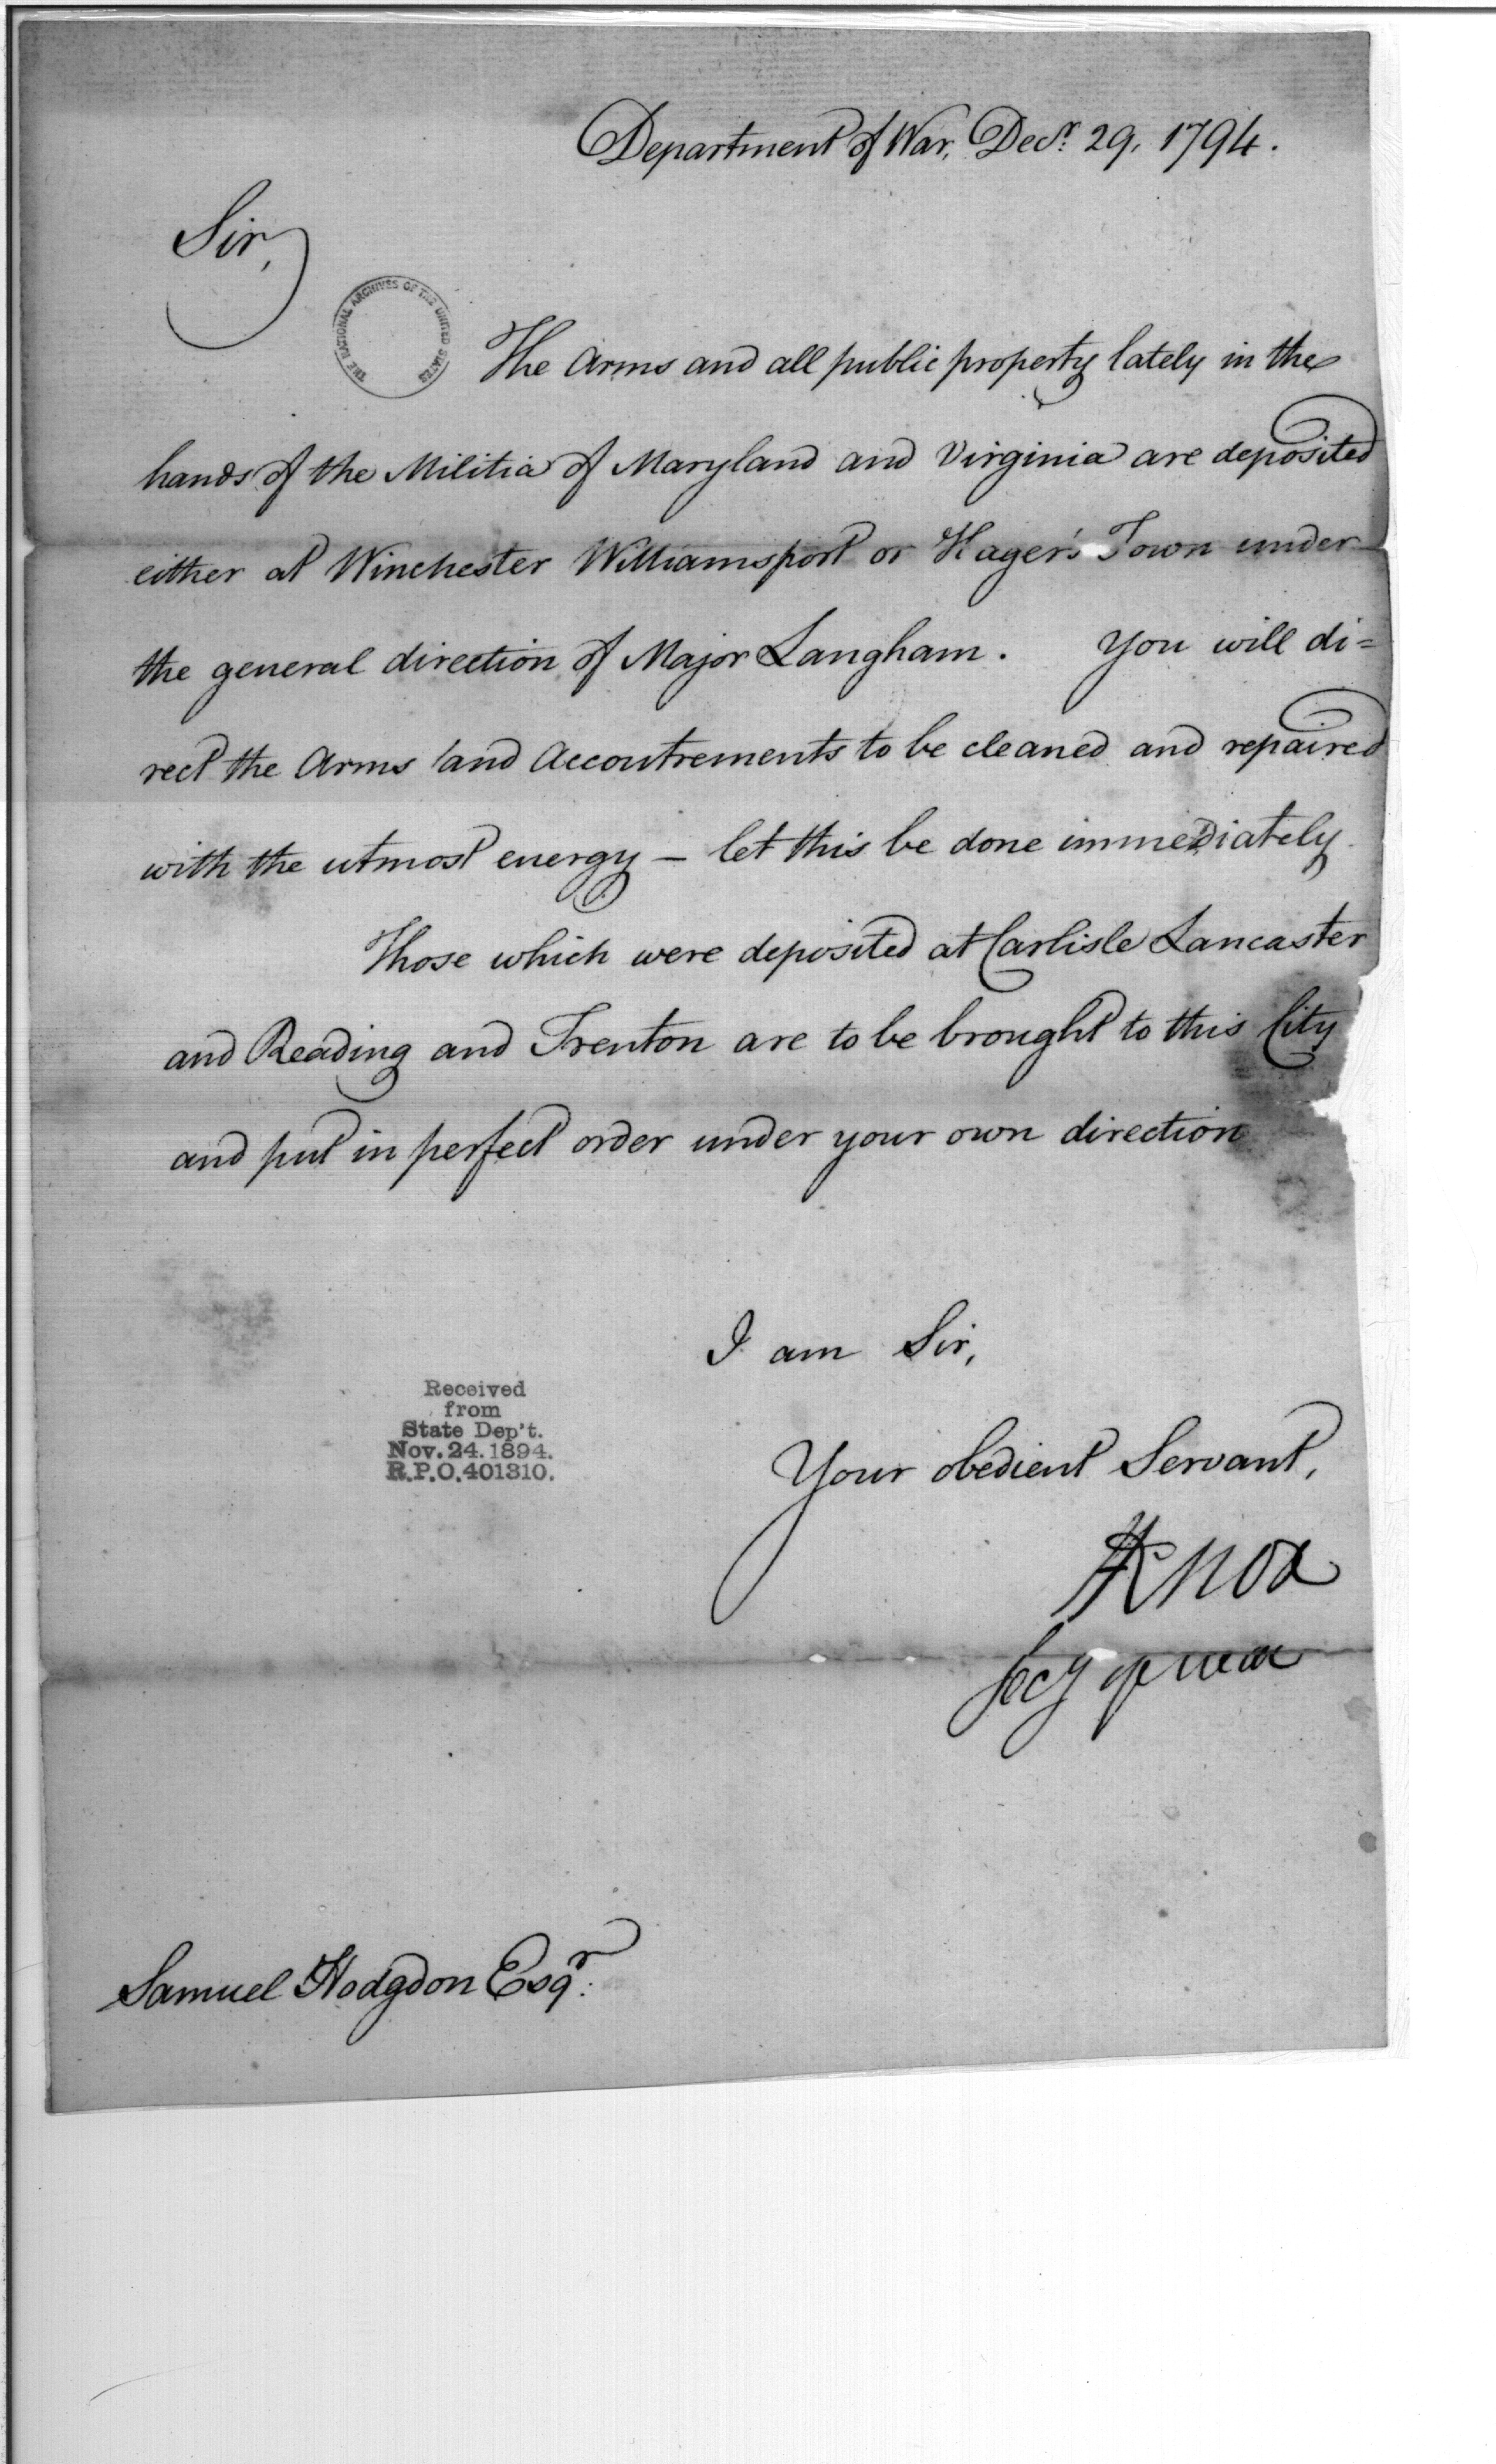 Department of War, Decr. 29, 1794.
Sir,
THE NATIONAL ARCHIVES OF THE UNITED STATES
The Arms and all public property lately in the
hands of the Militia of Maryland and Virginia are deposited
either at Winchester Williamsport or Hager's Town under
the general direction of Major Langham. You will di=
rect the Arms and Accoutrements to be cleaned and repaired
with the utmost energy – let this be done immediately.
Those which were deposited at Carlisle Lancaster
and Reading and Trenton are to be brought to this City
and put in perfect order under your own direction
I am Sir,
Received
from
State Dep't.
Nov. 24. 1894.
R.P.O. 401310.
Your obedient Servant,
HKnox
Secy of war
Samuel Hodgdon Esqr.